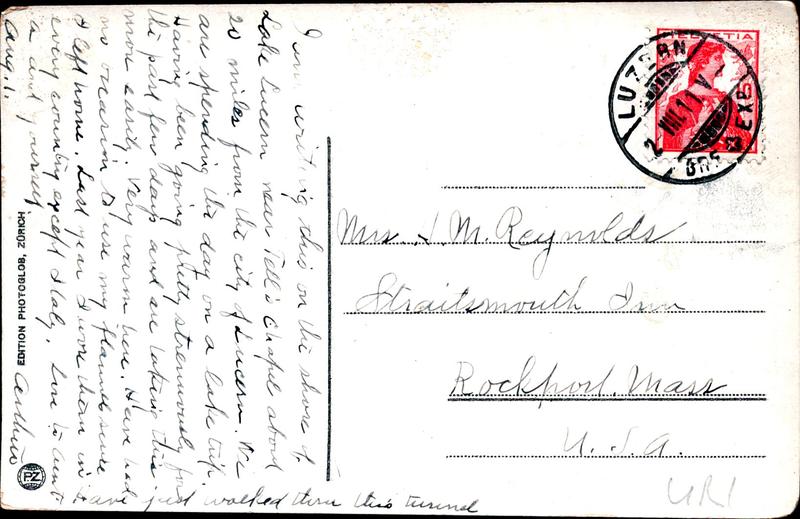 I am writing this on the shore of
Lake Lucern near Tell's Chapel about
20 miles from the city of Lucern. We
are spending the day on a lake trip.
Having been going pretty strenuously for
the past few days and are taking this
more easily. Very warm here. Have had
no occasion to use my flannels since
I left home. Last year I wore them in
every country except Italy. Love to Aunt
a and yourself.
Aug. 1.
Arthur
Have just walked thru this tunnel
EDITION PHOTOGLOB, ZÜRICH
PZ
HELVETIA
LUZERN
2. VIII. 11. V
BRF. EXP.
Mrs. J. M. Reynolds
Straitsmouth Inn
Rockport, Mass
U.S.A.
URI